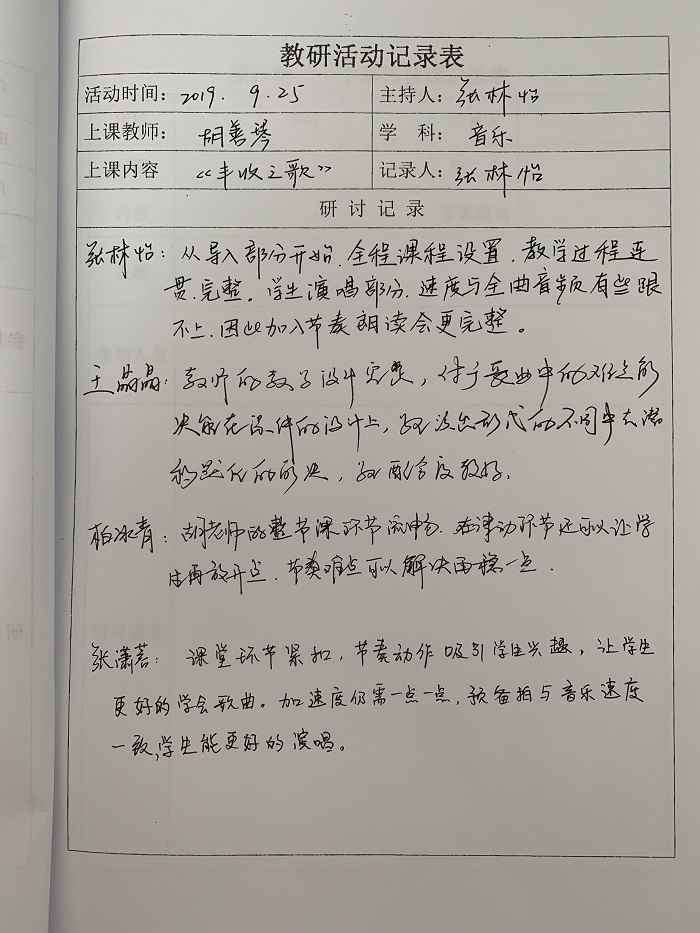 教研活动记录表
活动时间：2019. 9.25 主持人：张林怡
上课教师：胡善琴 学 科：音乐
上课内容 《丰收之歌》 记录人：张林怡
研 讨 记 录
张林怡：从导入部分开始、全程课程设置、教学过程连
贯、完整。学生演唱部分、速度与全曲音频有些跟
不上、因此加入节奏朗读会更完整。
王晶晶：教师的教学设计完整，对于歌曲中的难点解
决能在课件的设计上，形式的不同中去潜
移默化的解决，配合度较好。
柏冰青：胡老师的整节课环节流畅、在律动环节还可以让学
生再放开点、节奏难点可以解决再稳一点．
张潇茗：课堂环节紧扣，节奏动作吸引学生兴趣，让学生
更好的学会歌曲。加速度仍需一点一点，预备拍与音乐速度
一致，学生能更好的演唱。